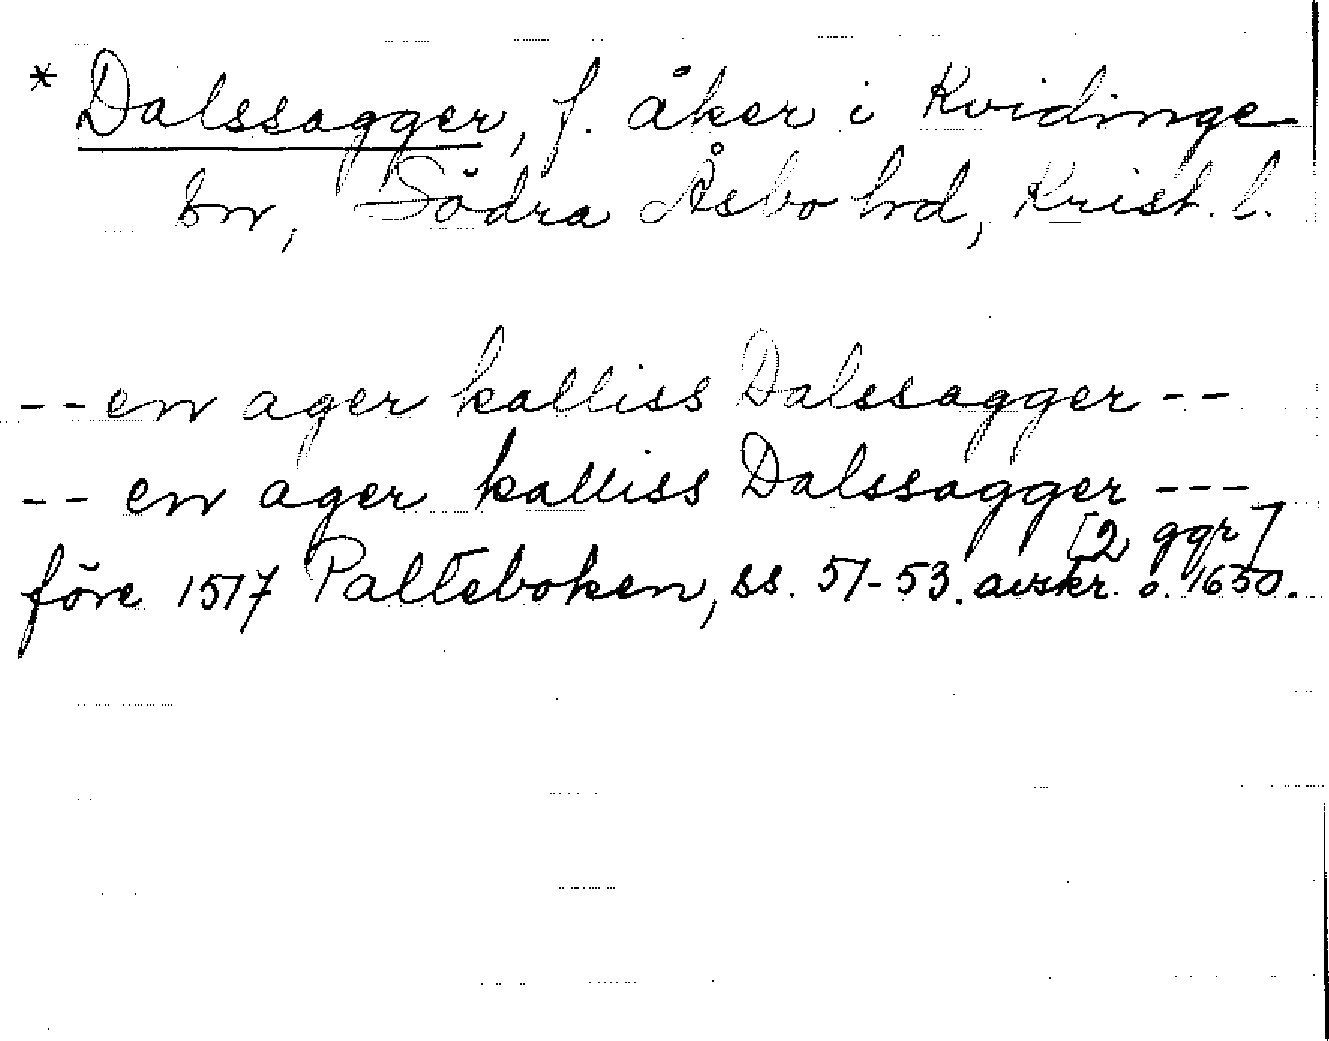 * Dalssagger, f. åker i Kvidinge
sn, Södra Åsbo hd, Krist. l.
-- en ager kalliss Dalssagger --
-- en ager kalliss Dalssagger ---
[2 ggr]
före 1517 Palteboken, ss. 51-53. avskr. o. 1650.